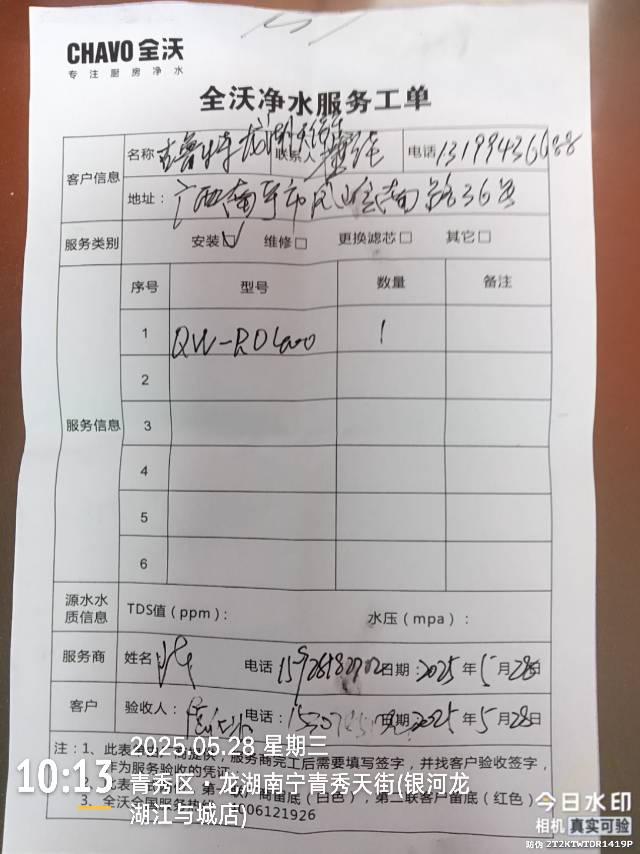 CHAVO 全沃
专注厨房净水
全沃净水服务工单
客户信息
名称 联系人 电话 13199436688
地址： 广西南宁市凤岭南路36号
服务类别 安装 维修 更换滤芯 其它
服务信息
序号 型号 数量 备注
1 1
2
3
4
5
6
源水水质信息 TDS值（ppm）： 水压（mpa）：
服务商 姓名 电话 日期：2025年5月28日
客户 验收人： 电话： 日期：2025年5月28日
注：1、此表 提供，服务商完工后需要填写签字，并找客户验收签字，
作为服务验收的凭证
2、此表 留底（白色），第二联客户留底（红色）
3、全沃全国服务热线 4006121926
10:13
2025.05.28 星期三
青秀区 · 龙湖南宁青秀天街(银河龙湖江与城店)
今日水印
相机 真实可验
防伪 2T2KTWTDR1419P